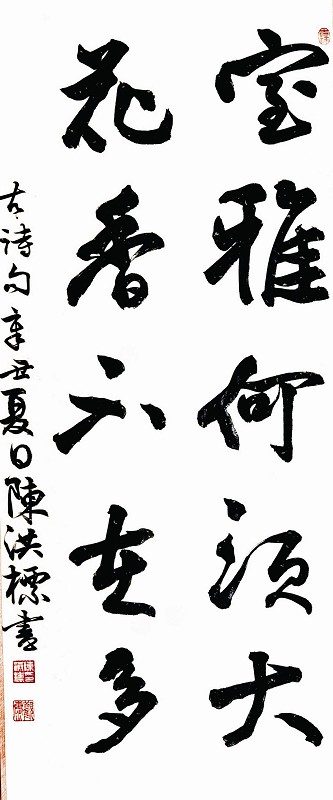 室雅何須大
花香不在多
古詩句辛丑夏日陳洪標書